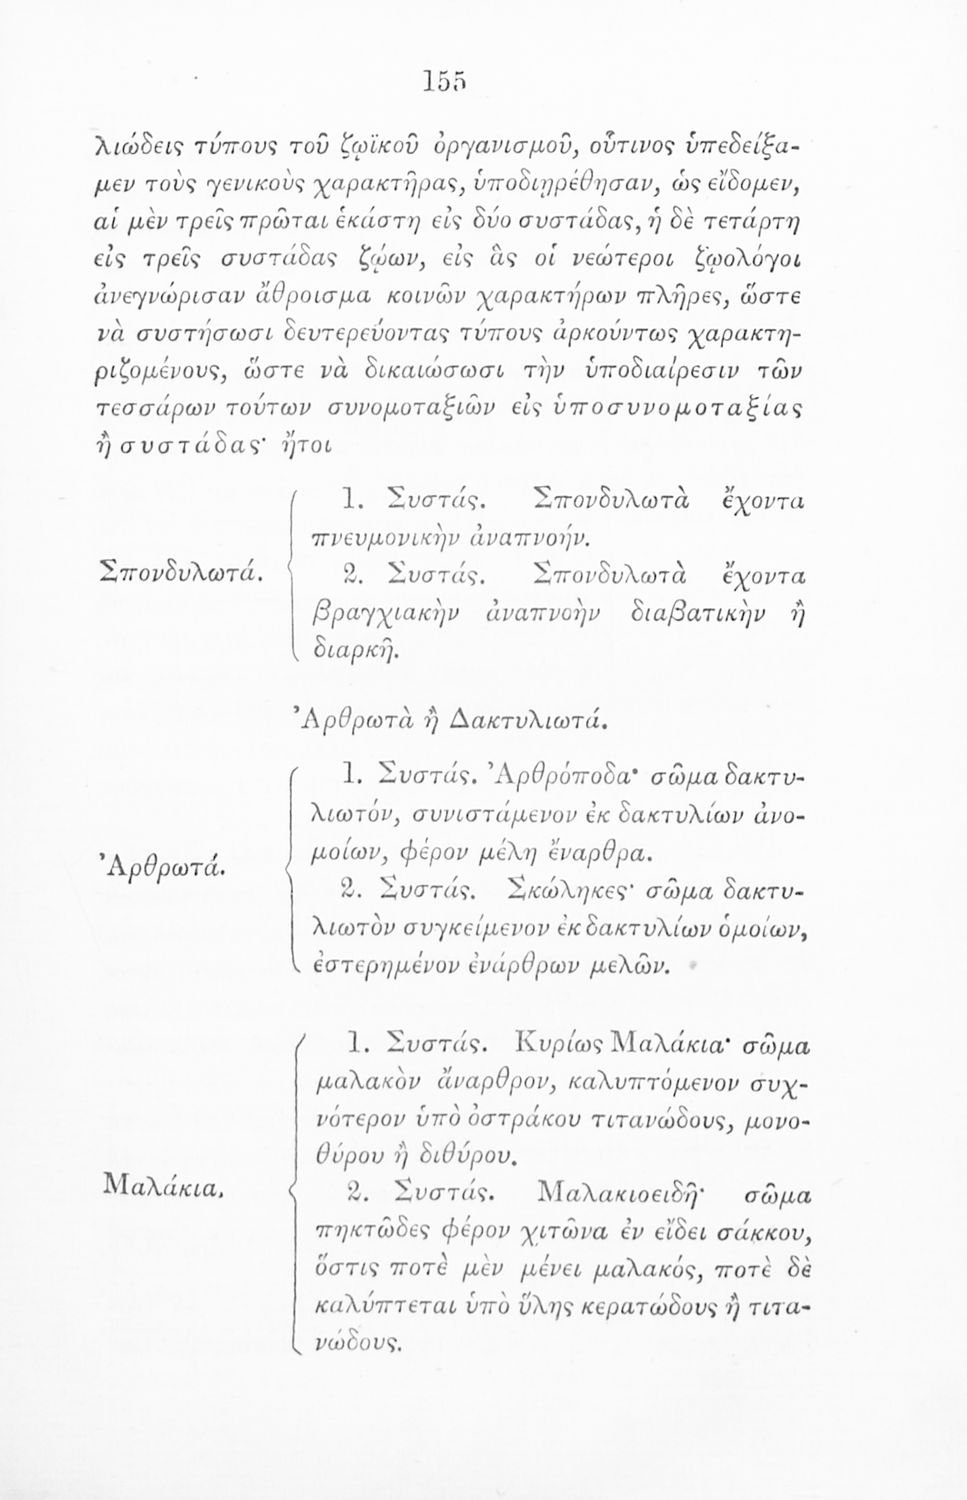 155
λιώδεις τύπους τοῦ ζῳϊκοῦ ὀργανισμοῦ, οὗτινος ὑπεδείξα-
μεν τοὺς γενικοὺς χαρακτῆρας, ὑποδιῃρέθησαν, ὡς εἴδομεν,
αἱ μὲν τρεῖς πρῶται ἑκάστη εἰς δύο συστάδας, ἡ δὲ τετάρτη
εἰς τρεῖς συστάδας ζῴων, εἰς ἃς οἱ νεώτεροι ζῳολόγοι
ἀνεγνώρισαν ἄθροισμα κοινῶν χαρακτήρων πλῆρες, ὥστε
νὰ συστήσωσι δευτερεύοντας τύπους ἀρκούντως χαρακτη-
ριζομένους, ὥστε νὰ δικαιώσωσι τὴν ὑποδιαίρεσιν τῶν
τεσσάρων τούτων συνομοταξιῶν εἰς ὑποσυνομοταξίας
ἢ συστάδας· ἤτοι
1. Συστάς. Σπονδυλωτὰ ἔχοντα
πνευμονικὴν ἀναπνοήν.
Σπονδυλωτά.
2. Συστάς. Σπονδυλωτὰ ἔχοντα
βραγχιακὴν ἀναπνοὴν διαβατικὴν ἢ
διαρκῆ.
Ἀρθρωτὰ ἢ Δακτυλιωτά.
1. Συστάς. Ἀρθρόποδα· σῶμα δακτυ-
λιωτόν, συνιστάμενον ἐκ δακτυλίων ἀνο-
μοίων, φέρον μέλη ἔναρθρα.
Ἀρθρωτά.
2. Συστάς. Σκώληκες· σῶμα δακτυ-
λιωτὸν συγκείμενον ἐκ δακτυλίων ὁμοίων,
ἐστερημένον ἐνάρθρων μελῶν.
1. Συστάς. Κυρίως Μαλάκια· σῶμα
μαλακὸν ἄναρθρον, καλυπτόμενον συχ-
νότερον ὑπὸ ὀστράκου τιτανώδους, μονο-
θύρου ἢ διθύρου.
Μαλάκια.
2. Συστάς. Μαλακιοειδῆ· σῶμα
πηκτῶδες φέρον χιτῶνα ἐν εἴδει σάκκου,
ὅστις ποτὲ μὲν μένει μαλακός, ποτὲ δὲ
καλύπτεται ὑπὸ ὕλης κερατώδους ἢ τιτα-
νώδους.